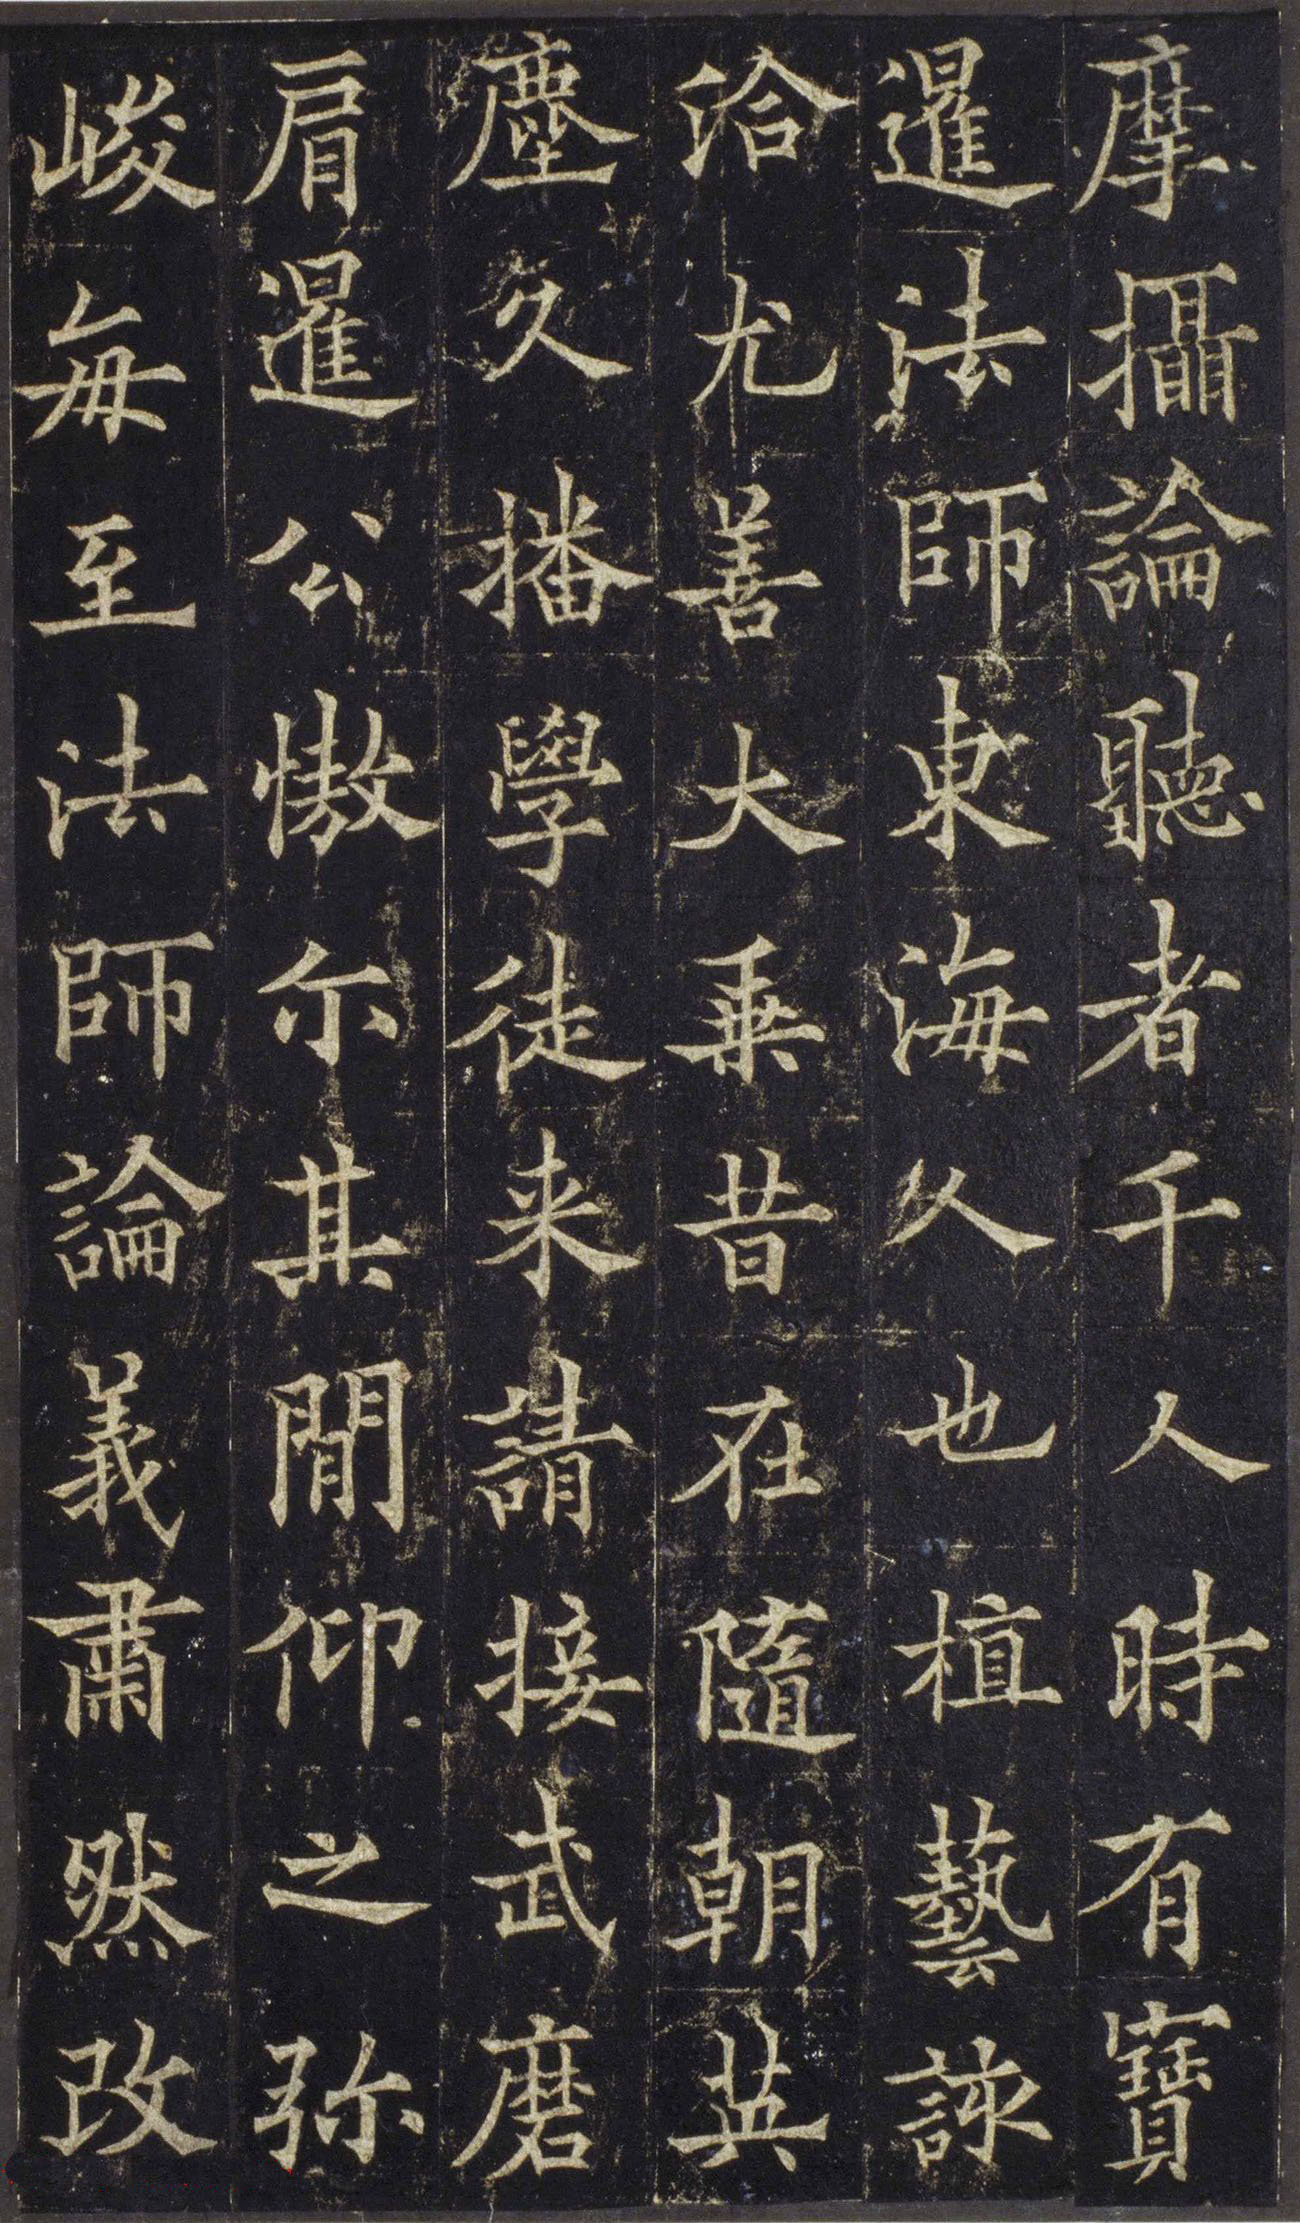 摩攝論聽者千人時有寶
暹法師東海人也植藝詠
洽尤善大乗昔在隨朝英
塵久播學徒来請接武磨
肩暹公慠尓其閒仰之弥
峻每至法師論義肅然改